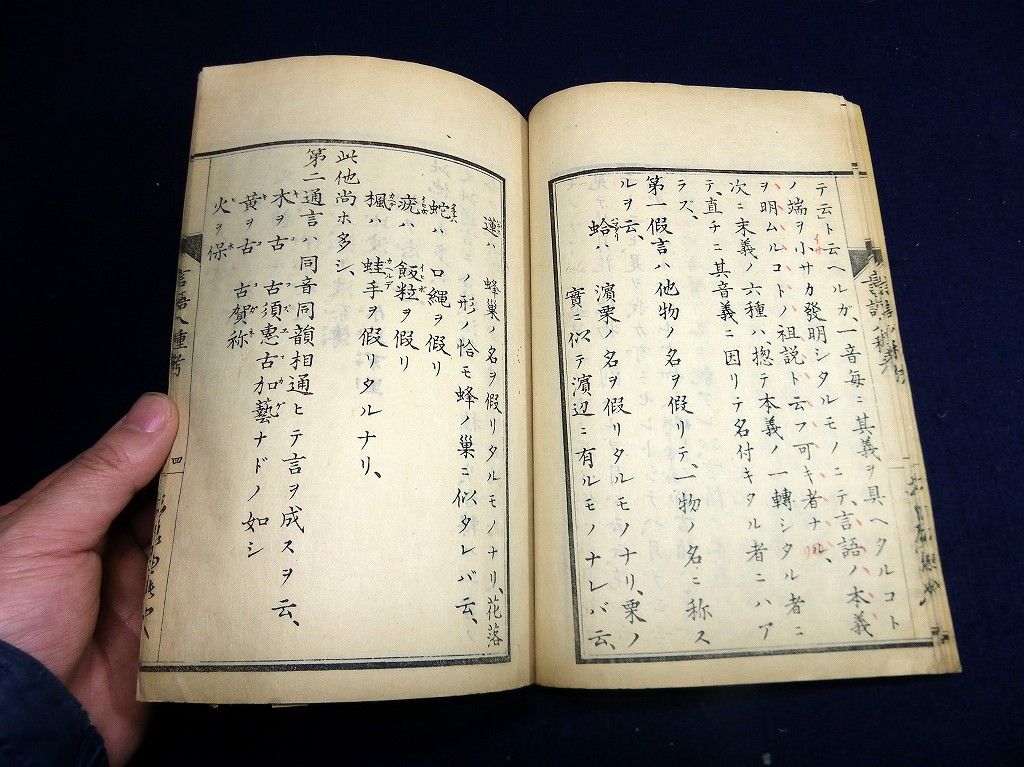 テ云」ト云ヘルガ、一音毎ニ其義ヲ具ヘタルコト
ノ端ヲ小サカ發明シタルモノニテ、言語ノ本義
ヲ明ムルコトノ祖説ト云フ可キ者ナル、
次ニ末義ノ六種ハ、惣テ本義ノ一轉シタル者ニ
テ、直チニ其音義ニ因リテ名付キタル者ニハア
ラズ、
第一假言ハ他物ノ名ヲ假リテ、一物ノ名ニ称ス
ルヲ云、
蛤ハ濱栗ノ名ヲ假リタルモノナリ、栗ノ
實ニ似テ濱辺ニ有ルモノナレバ云、
蓮ハ蜂巢ノ名ヲ假リタルモノナリ、花落
ノ形ノ恰モ蜂ノ巢ニ似タレバ云、
蛇ハ口縄ヲ假リ
疣ハ飯粒ヲ假リ
楓ハ蛙手ヲ假リタルナリ、
此他尚ホ多シ、
第二通言ハ同音同韻相通ヒテ言ヲ成スヲ云、
木ヲ古 古須恵古加藝ナドノ如シ
黄ヲ古 古賀称
火ヲ保
言語八種考
四